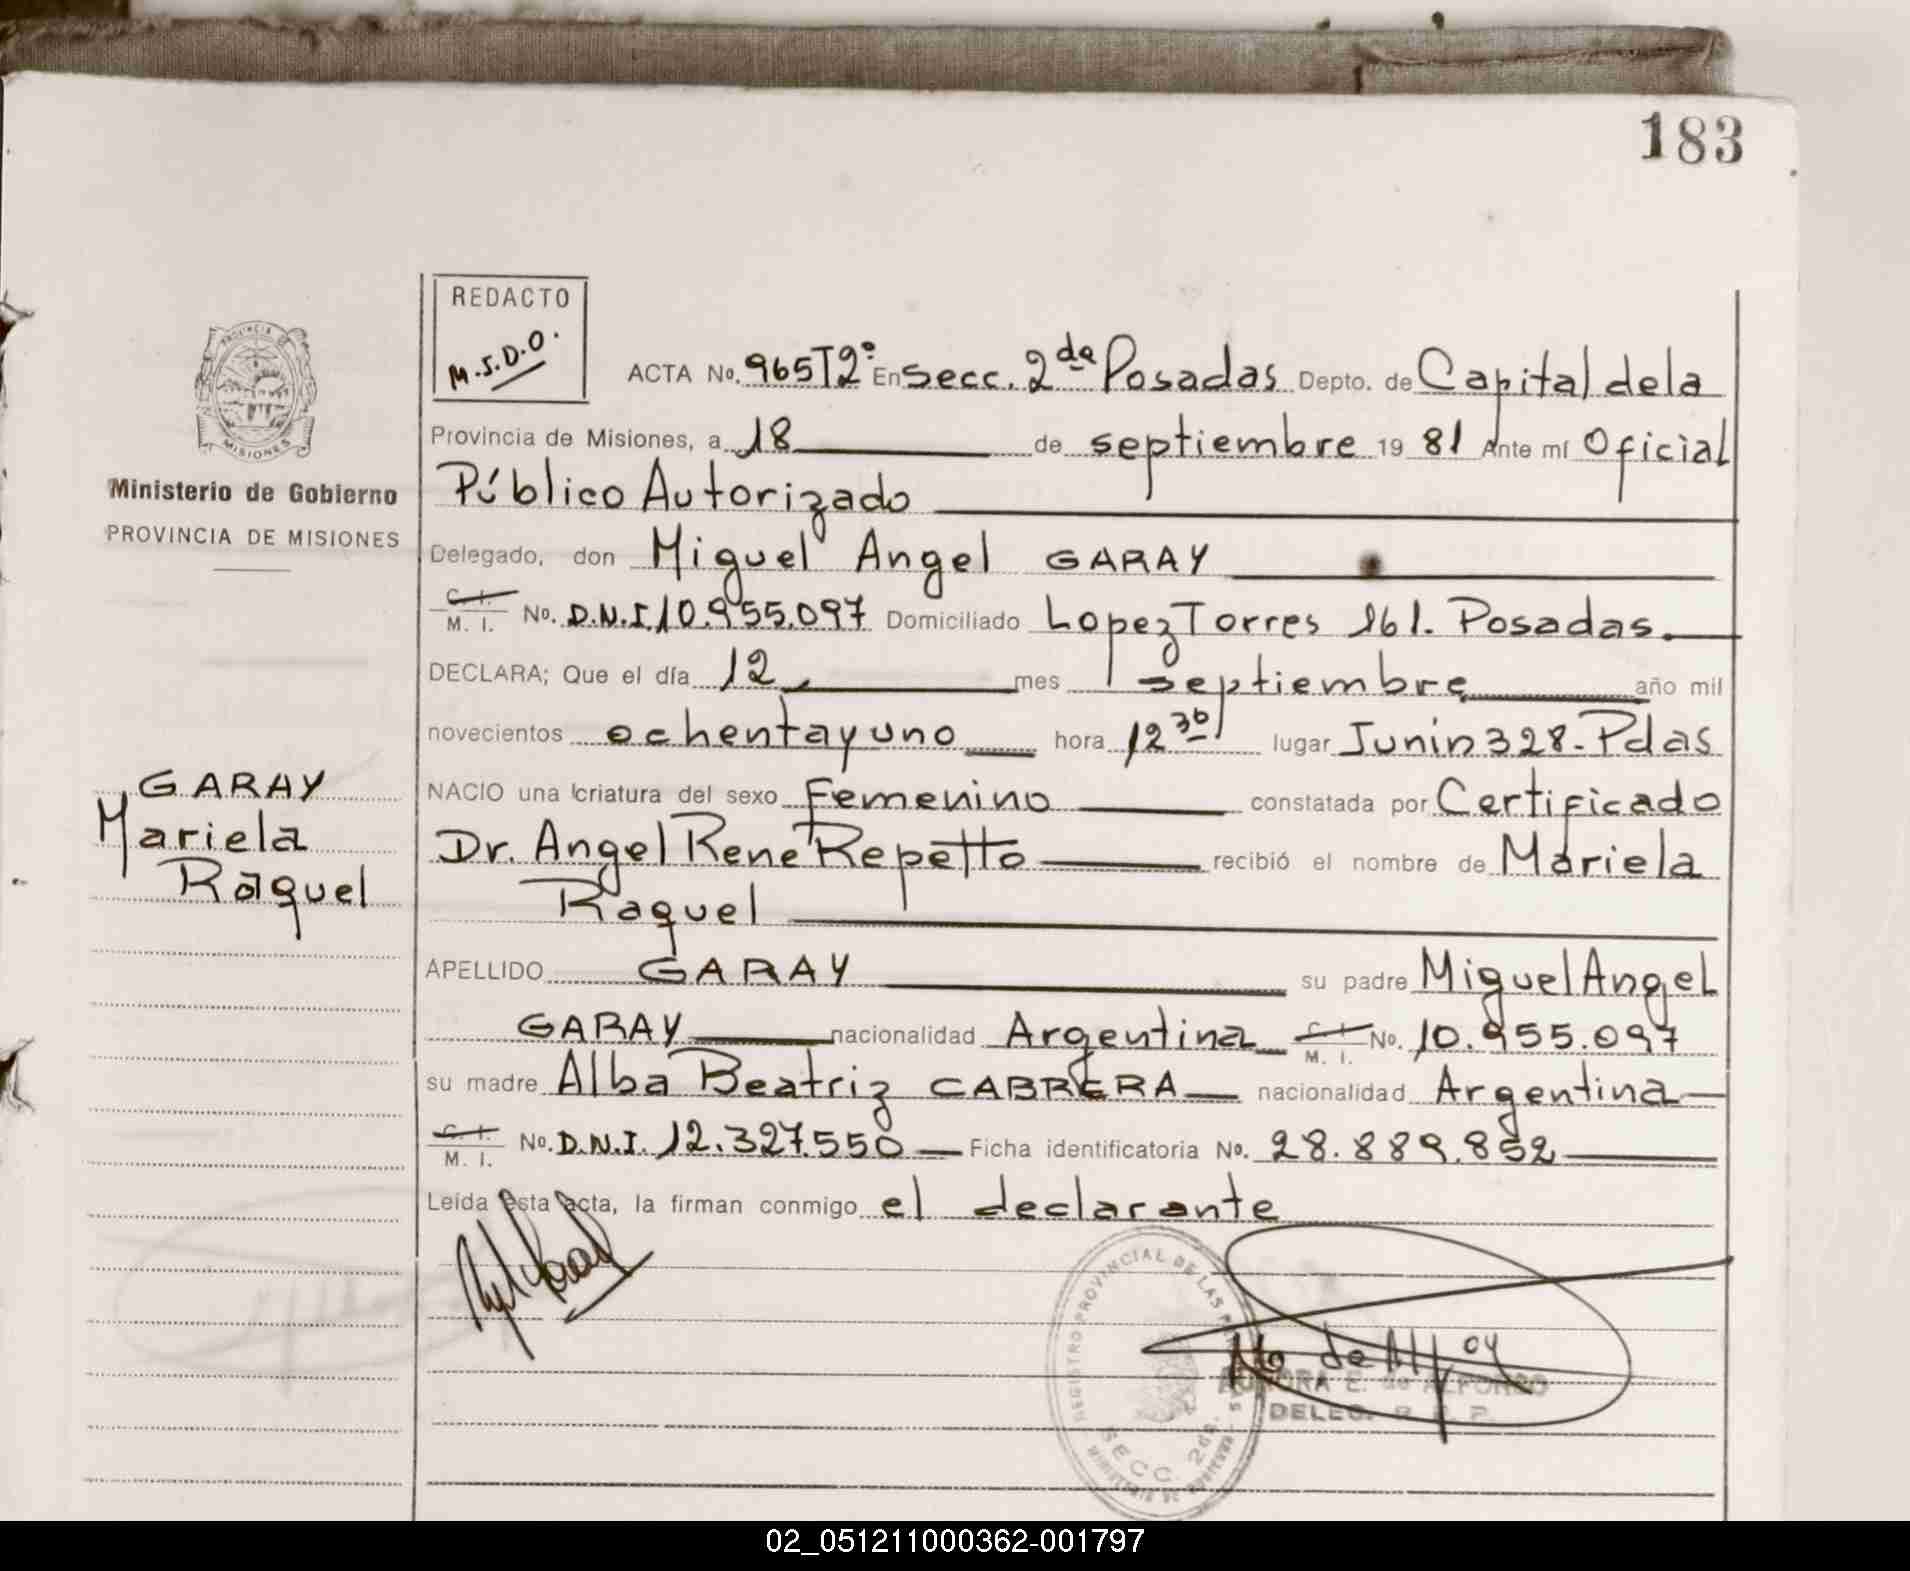 183
REDACTO
M.S.D.O.
ACTA No. 965T2º En Secc. 2da Posadas Depto. de Capital de la
Provincia de Misiones, a 18 de septiembre 19 81 Ante mí Oficial
Público Autorizado
Delegado, don Miguel Angel GARAY
C. I. M. I. No. D.N.I. 10.955.097 Domiciliado Lopez Torres 161. Posadas.
DECLARA; Que el día 12 mes septiembre año mil
novecientos ochenta y uno hora 12 30 lugar Junin 328 - Pdas
NACIO una criatura del sexo Femenino constatada por Certificado
Dr. Angel Rene Repetto recibió el nombre de Mariela
Raquel
APELLIDO GARAY su padre Miguel Angel
GARAY nacionalidad Argentina C. I. M. I. No. 10.955.097
su madre Alba Beatriz CABRERA nacionalidad Argentina
C. I. M. I. No. D.N.I. 12.327.550 Ficha identificatoria No. 28.889.852
Leída esta acta, la firman conmigo el declarante
PROVINCIA DE
MISIONES
Ministerio de Gobierno
PROVINCIA DE MISIONES
GARAY
Mariela
Raquel
REGISTRO PROVINCIAL DE LAS
SECC. 2da.
AURORA E. de ALFONSO
DELEG. R. P. P.
02_051211000362-001797